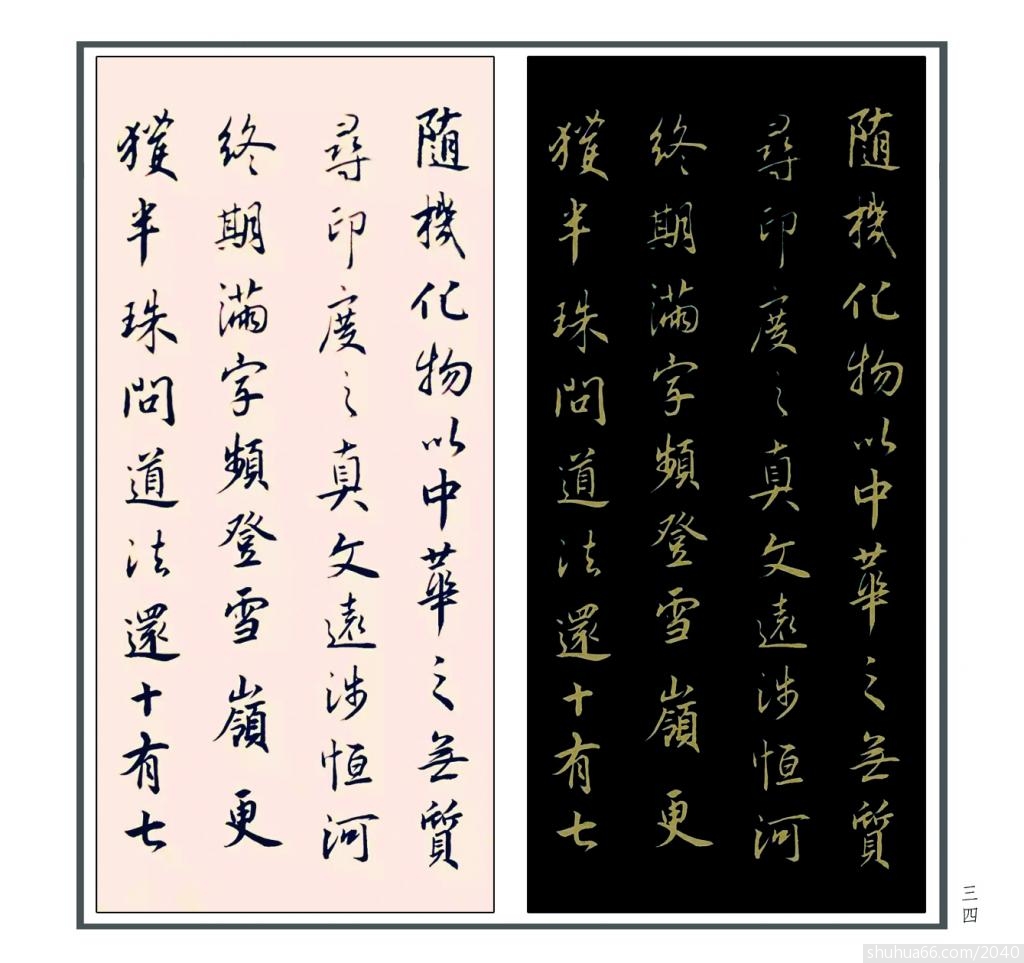 隨機化物以中華之無質
尋印度之真文遠涉恒河
終期滿字頻登雪嶺更
獲半珠問道法還十有七
隨機化物以中華之無質
尋印度之真文遠涉恒河
終期滿字頻登雪嶺更
獲半珠問道法還十有七
三四
shuhua66.com/2040